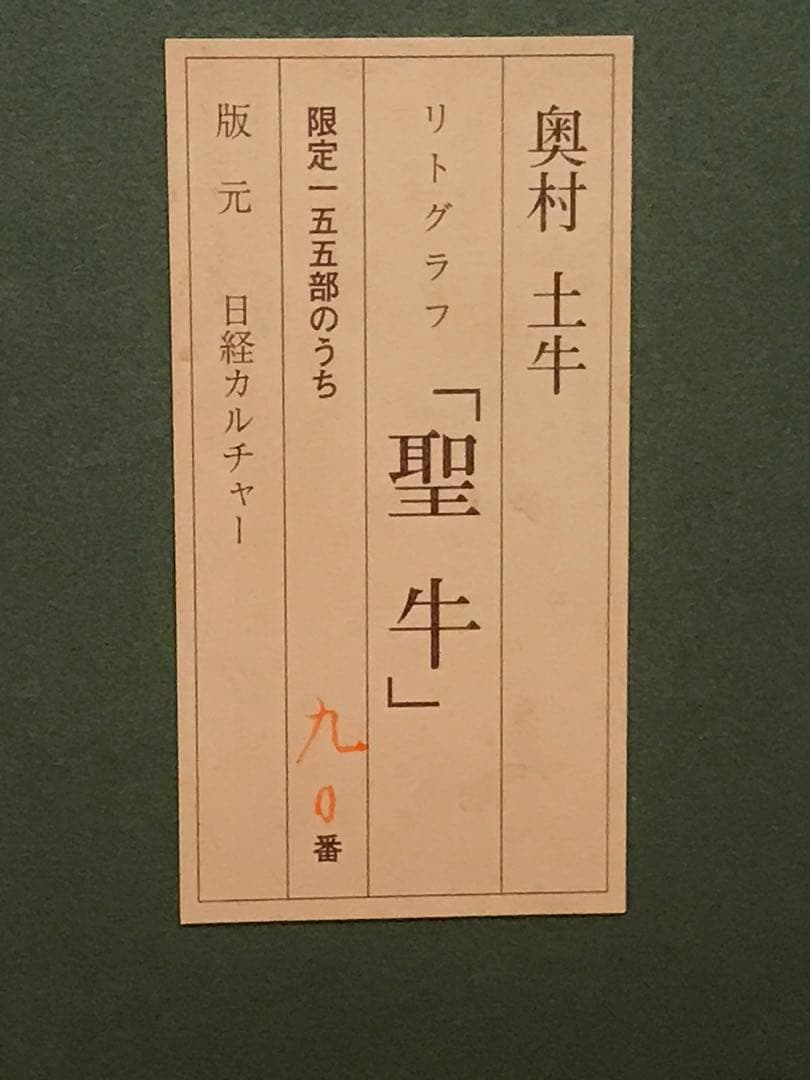 奥村 土牛
リトグラフ 「聖牛」
限定一五五部のうち 九〇番
版元 日経カルチャー